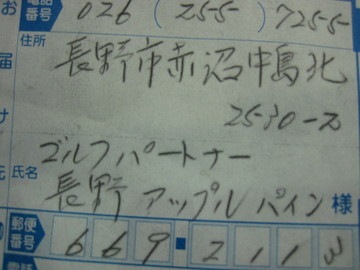 お 電話番号 026 (255) 7255
届 住所
長野市赤沼中島北
け 2530-2
ゴルフパートナー
先 氏名 長野 アップルパイン 様
郵便番号 669-2113